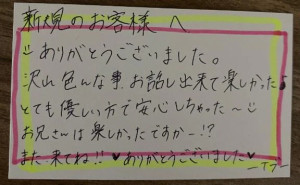 新規のお客様へ
ありがとうございました。
沢山色んな事、お話し出来て楽しかった♪
とても優しい方で安心しちゃった〜
お兄さんは楽しかったですかー!?
また来てね!!♥ありがとうございました♥